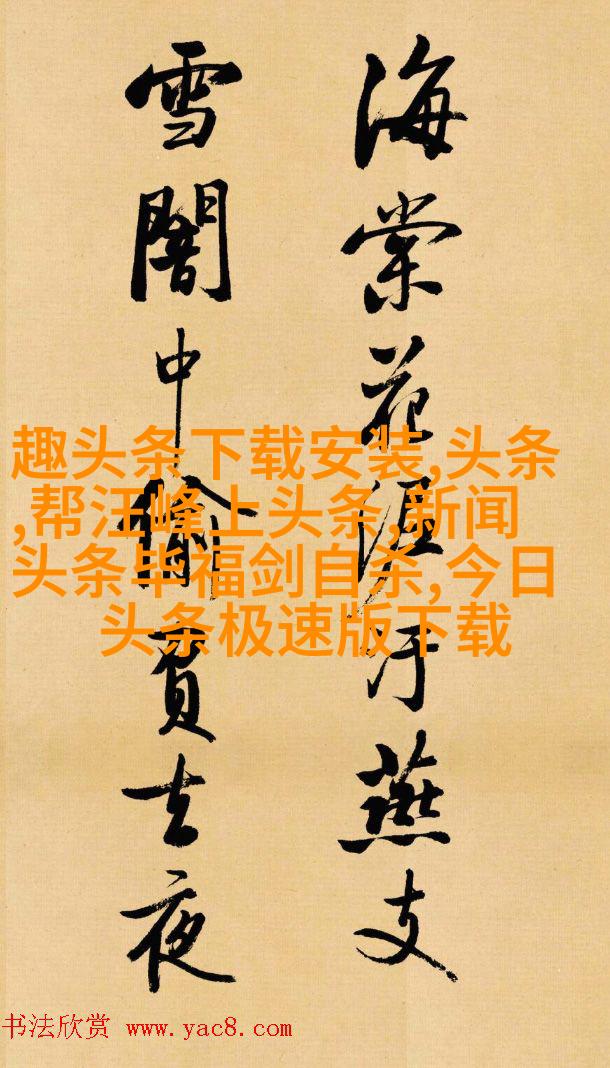 海棠花泥汙燕支
雪闇中偷負去夜
趣头条下载安装,头条
,帮汪峰上头条,新闻
头条毕福剑自杀,今日
头条极速版下载
书法欣赏 www.yac8.com